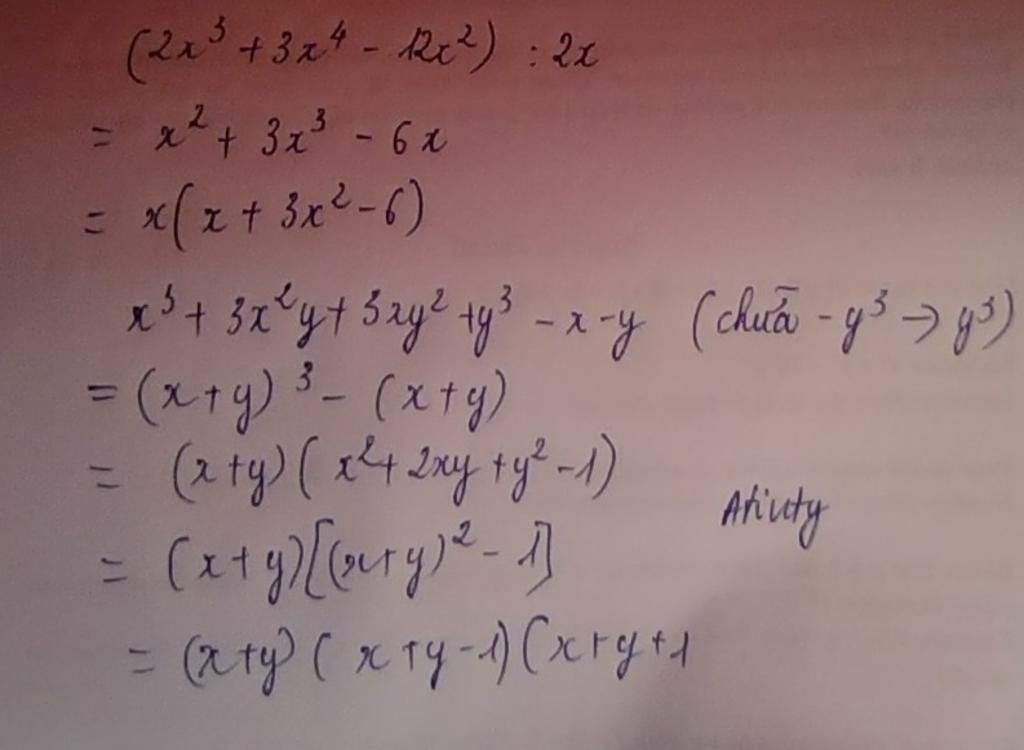 (2x³ + 3x⁴ - 12x²) : 2x
= x² + 3x³ - 6x
= x(x + 3x² - 6)
x³ + 3x²y + 3xy² + y³ - x - y (chữa - y³ → y³)
= (x + y)³ - (x + y)
= (x + y)(x² + 2xy + y² - 1)
= (x + y)[(x + y)² - 1]
= (x + y)(x + y - 1)(x + y + 1